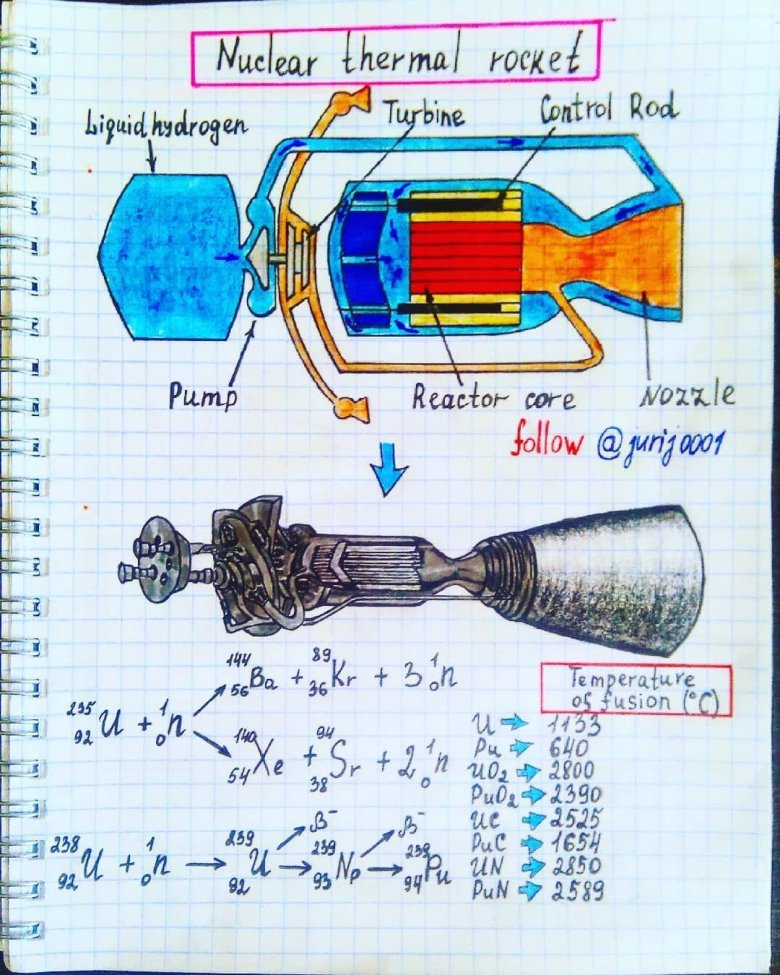 Nuclear thermal rocket
Liquid hydrogen
Turbine
Control Rod
Pump
Reactor core
Nozzle
follow @jurij0001
²³⁵₉₂U + ¹₀n
¹⁴⁴₅₆Ba + ⁸⁹₃₆Kr + 3 ¹₀n
¹⁴⁰₅₄Xe + ⁹⁴₃₈Sr + 2 ¹₀n
²³⁸₉₂U + ¹₀n → ²³⁹₉₂U → ²³⁹₉₃Np → ²³⁹₉₄Pu
β⁻ β⁻
Temperature
of fusion (°C)
U → 1133
Pu → 640
UO₂ → 2800
PuO₂ → 2390
UC → 2525
PuC → 1654
UN → 2850
PuN → 2589